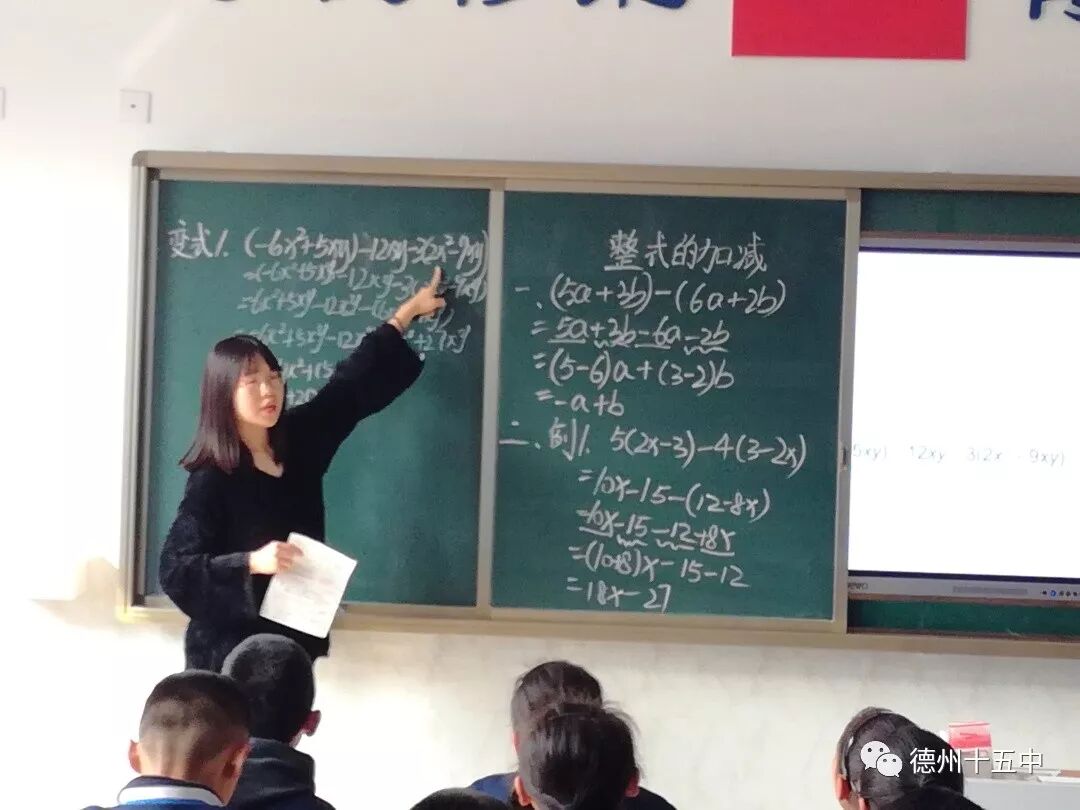 变式1. (-6x²+5xy)-12xy-3(2x²-9xy)
=(-6x²+5xy)-12xy-
=-6x²+5xy-12xy-
=-6x²+5xy-12x +27xy
整式的加减
一、(5a+3b)-(6a+2b)
=5a+3b-6a-2b
=(5-6)a+(3-2)b
=-a+b
二、例1. 5(2x-3)-4(3-2x)
=10x-15-(12-8x)
=10x-15-12+8x
=(10+8)x-15-12
=18x-27
5xy) 12xy 3(2x 9xy)
德州十五中